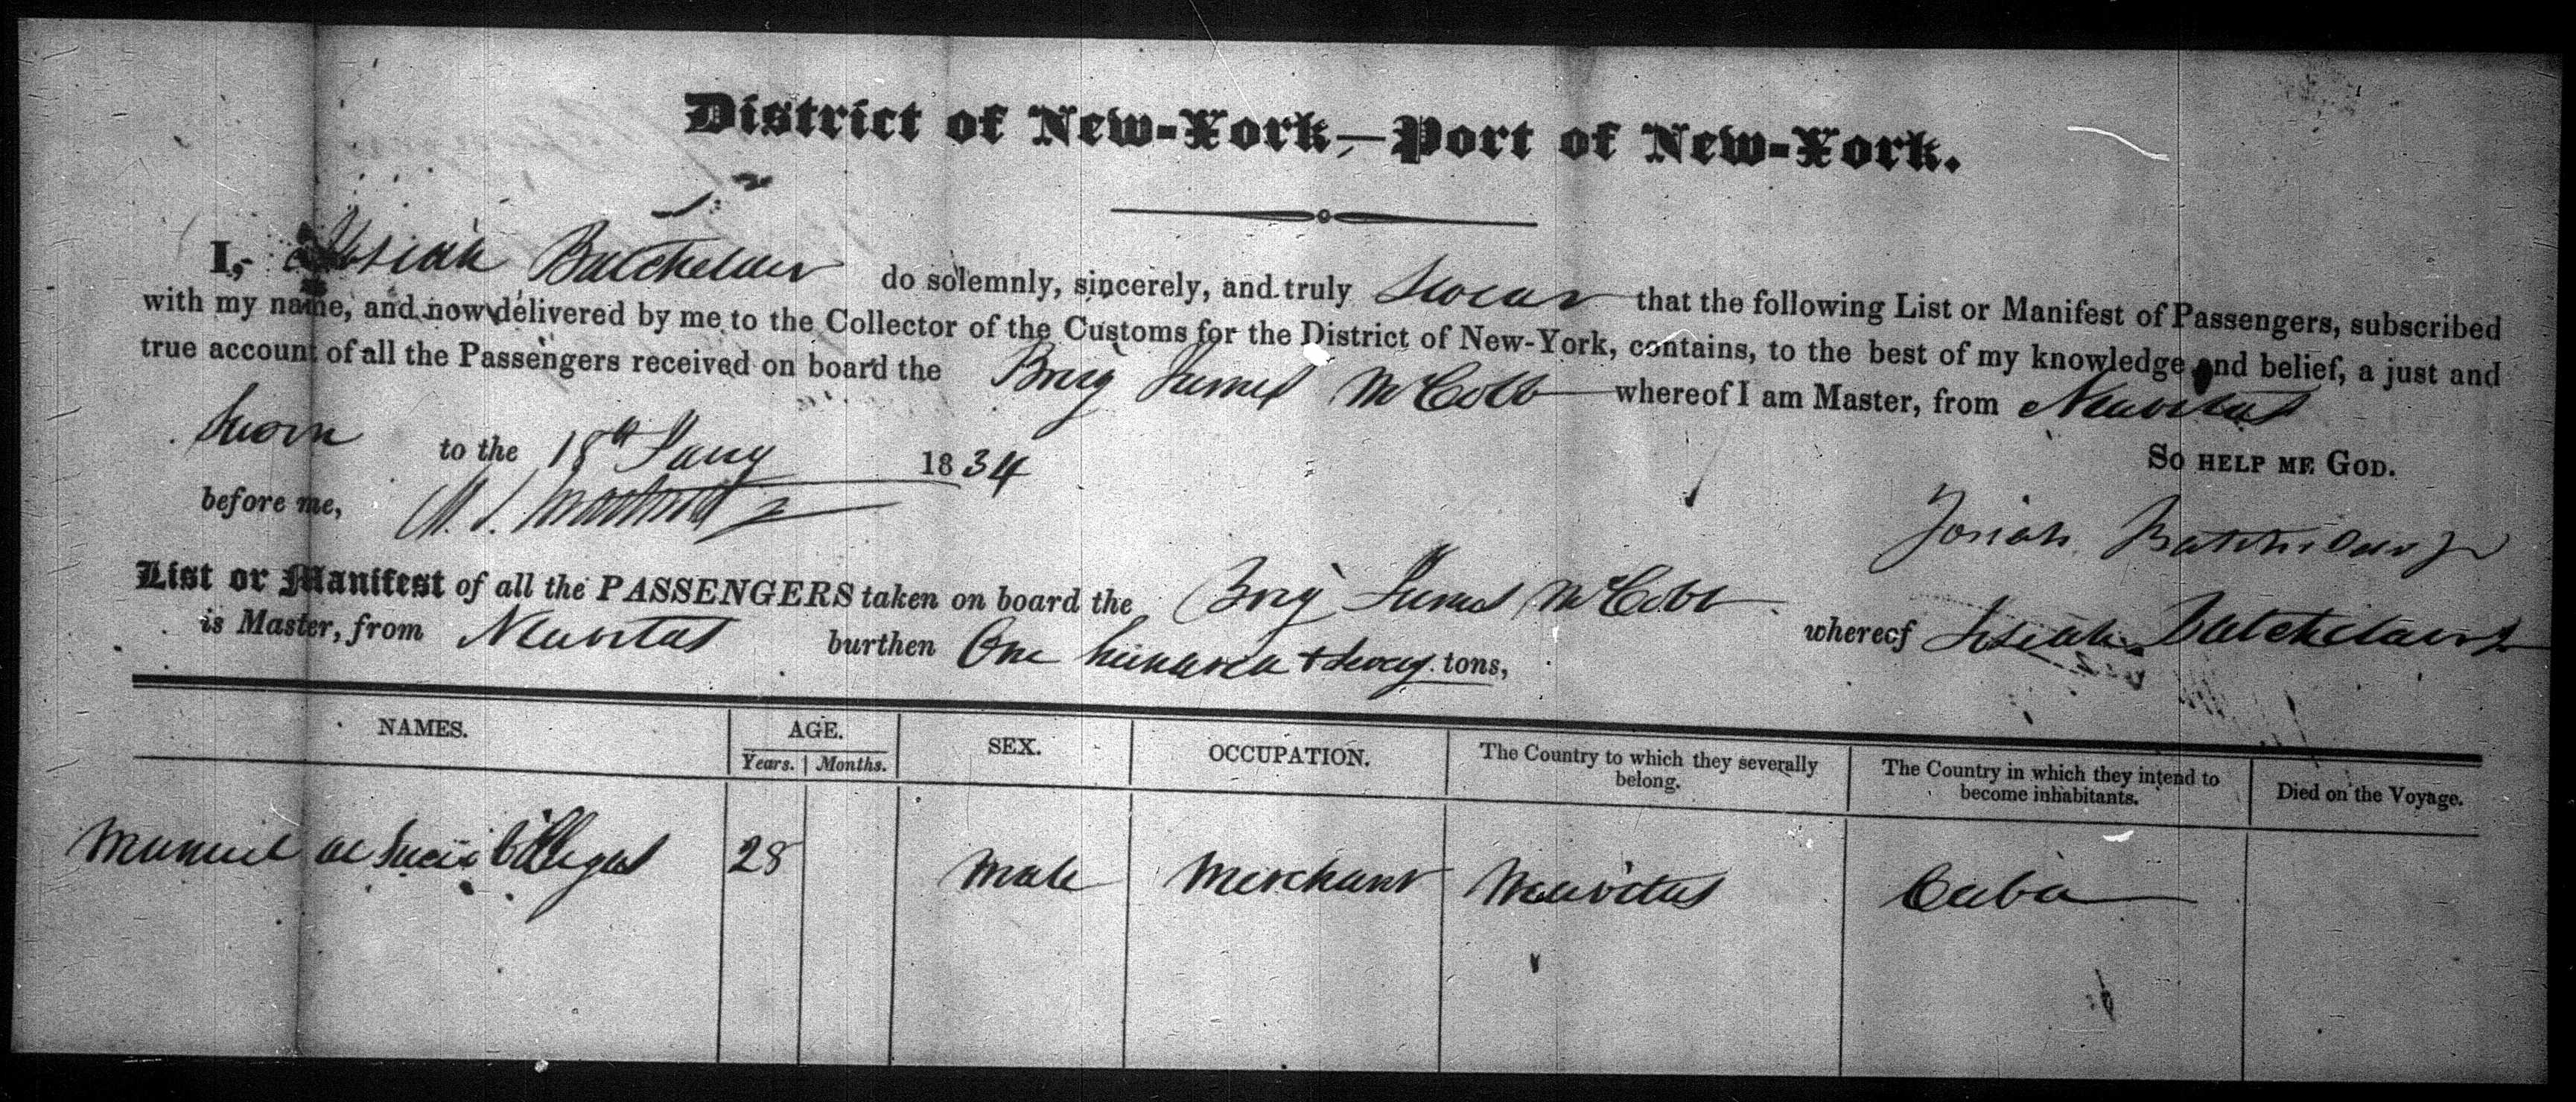 District of New-York—Port of New-York.
I, Josiah Batchelder do solemnly, sincerely, and truly Swear that the following List or Manifest of Passengers, subscribed
with my name, and now delivered by me to the Collector of the Customs for the District of New-York, contains, to the best of my knowledge and belief, a just and
true account of all the Passengers received on board the Brig James McCobb whereof I am Master, from Neuvitas
Sworn to the 18th Jany 1834 So help me God.
before me, Josiah Batchelder Jr
List or Manifest of all the PASSENGERS taken on board the Brig James McCobb whereof Josiah Batchelder Jr
is Master, from Neuvitas burthen One hundred + tons,
NAMES. AGE. Years. Months. SEX. OCCUPATION. The Country to which they severally belong. The Country in which they intend to become inhabitants. Died on the Voyage.
Manuel de 28 Male Merchant Neuvitas Cuba